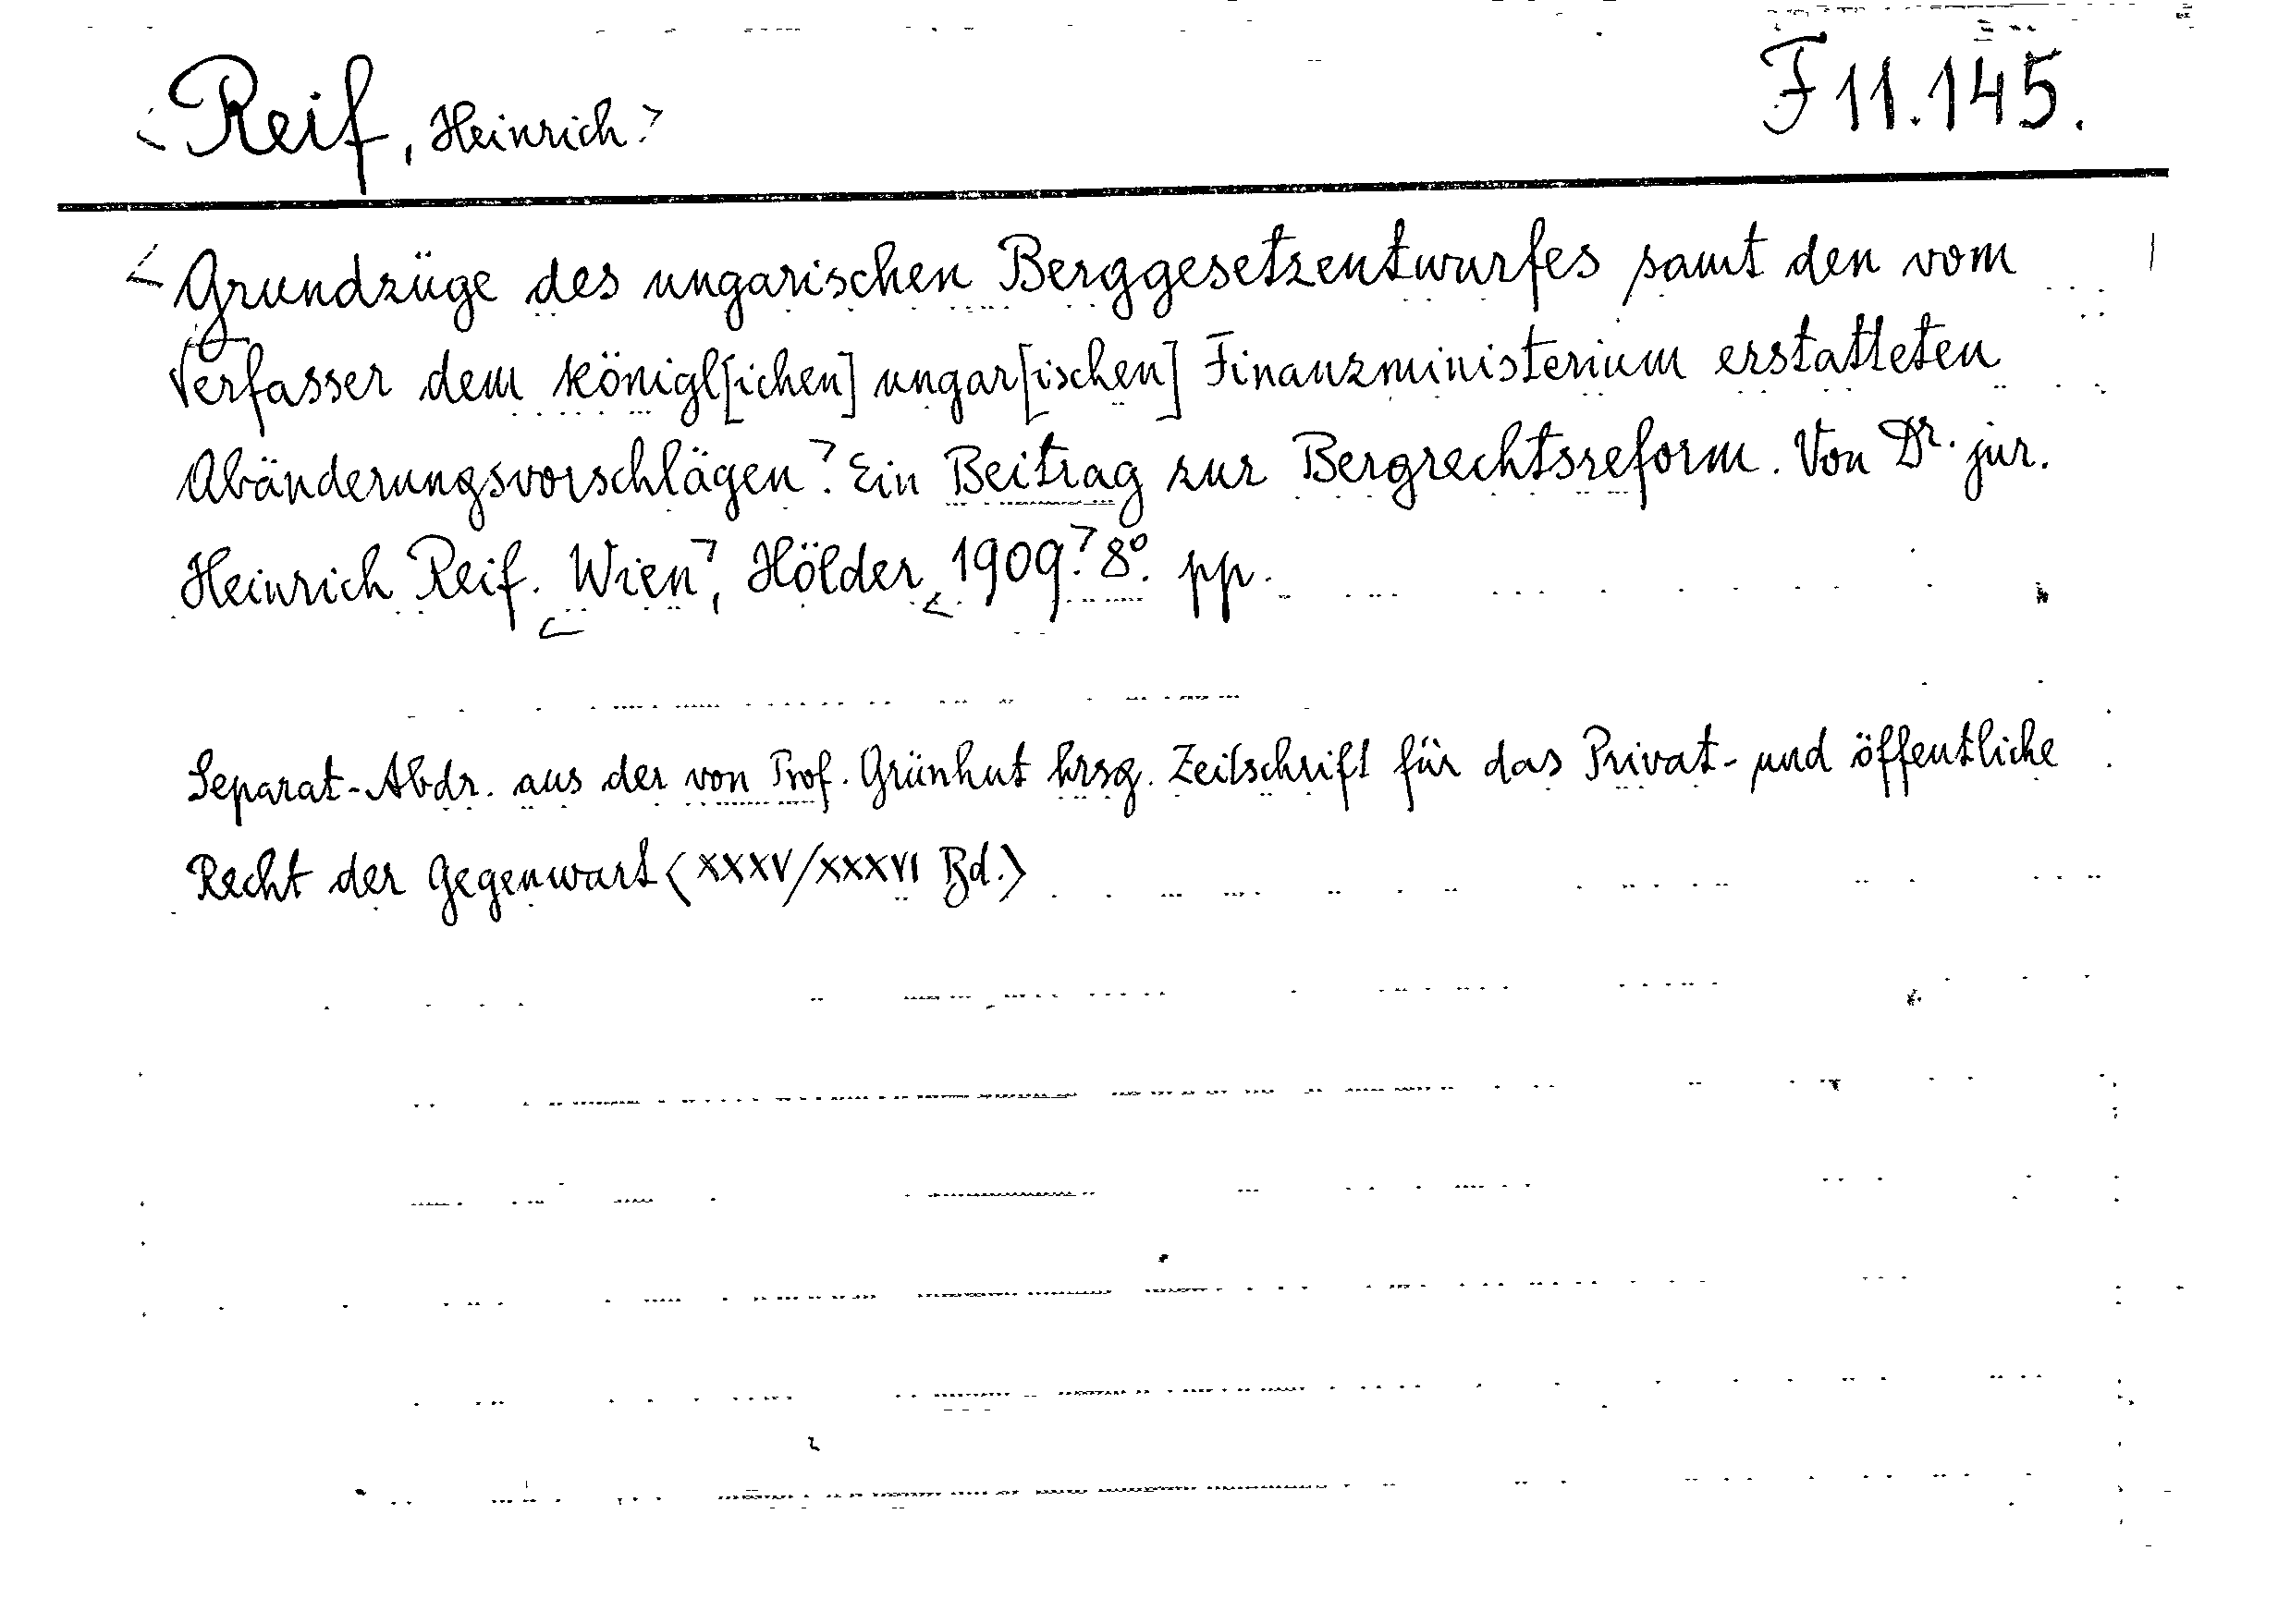 Reif, Heinrich.
F 11.145.
Grundzüge des ungarischen Berggesetzentwurfes samt den vom
Verfasser dem königl[ichen] ungar[ischen] Finanzministerium erstatteten
Abänderungsvorschlägen. Ein Beitrag zur Bergrechtsreform. Von Dr. jur.
Heinrich Reif. Wien, Hölder, 1909. 8°. pp.
Separat-Abdr. aus der von Prof. Grünhut hrsg. Zeitschrift für das Privat- und öffentliche
Recht der Gegenwart (XXXV/XXXVI Bd.)